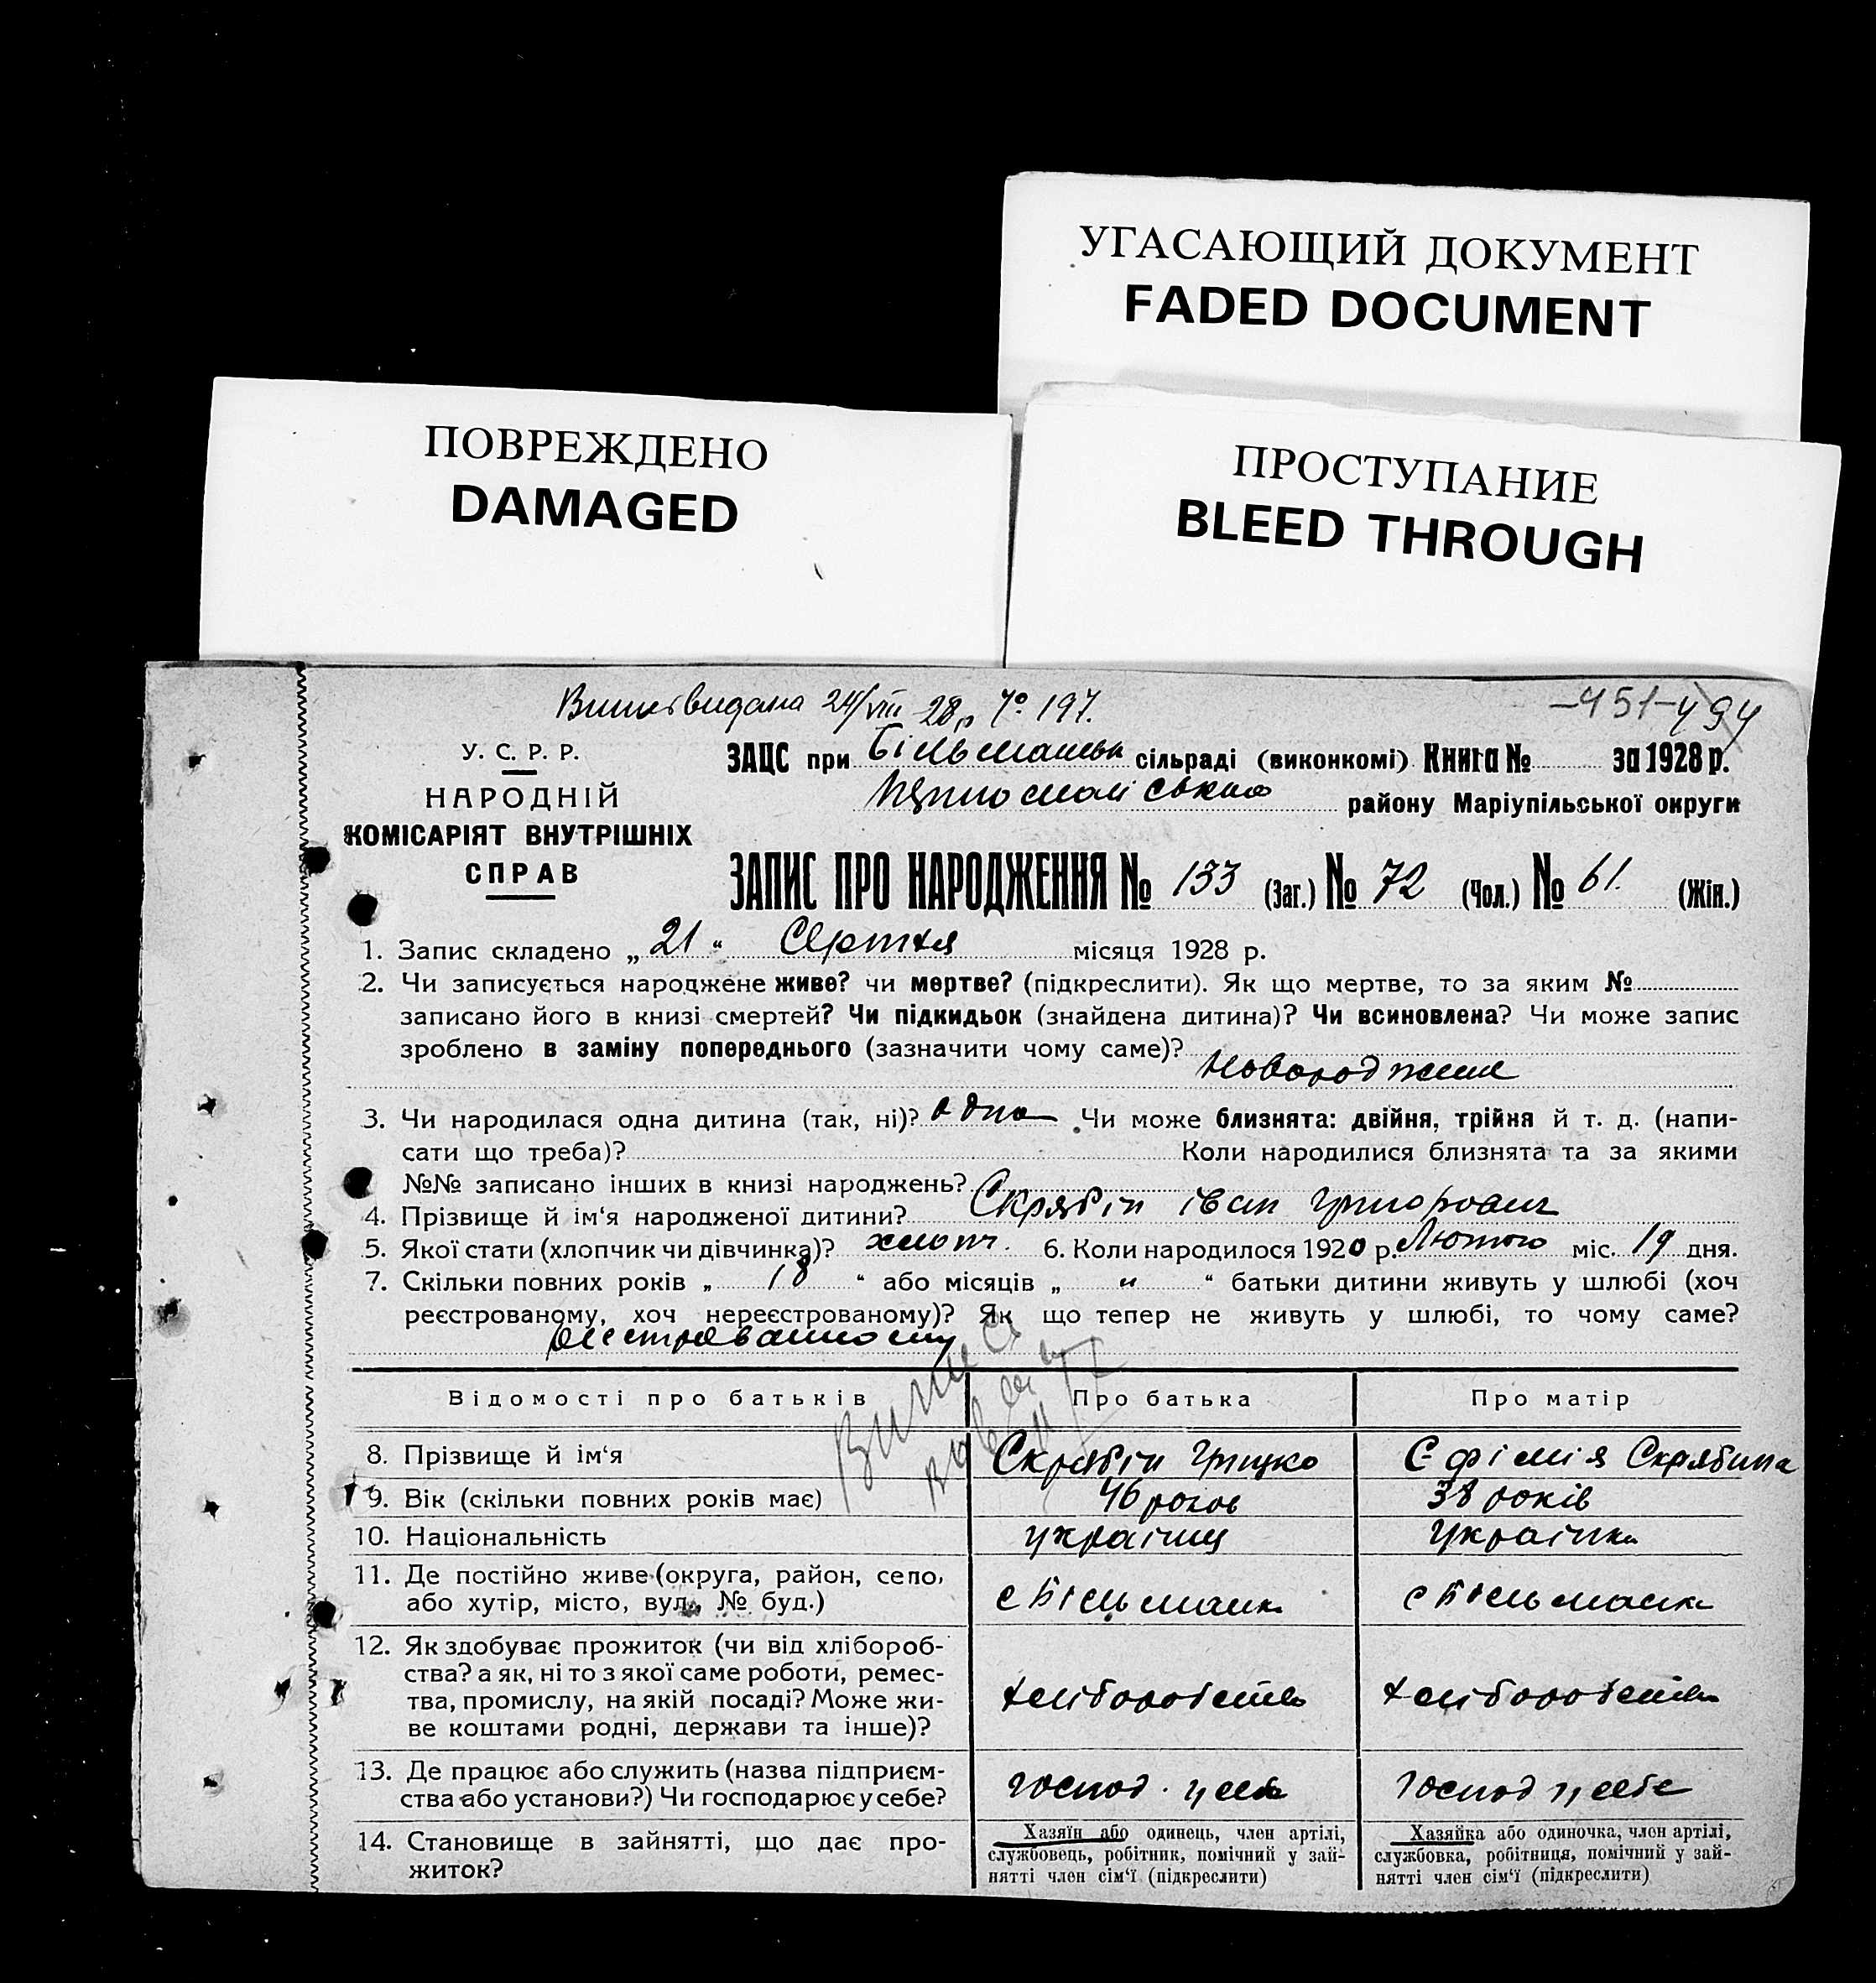 УГАСАЮЩИЙ ДОКУМЕНТ
FADED DOCUMENT
ПОВРЕЖДЕНО
DAMAGED
ПРОСТУПАНИЕ
BLEED THROUGH
видана 24/VIII 28р № 197.
-451-494
У. С. Р. Р.
НАРОДНІЙ
КОМІСАРІЯТ ВНУТРІШНІХ
СПРАВ
ЗАЦС при Більманськ сільраді (виконкомі) Книга № за 1928 р.
району Маріупільської округи
ЗАПИС ПРО НАРОДЖЕННЯ № 133 (Заг.) № 72 (Чол.) № 61. (Жін.)
1. Запис складено „ 21 “ Серпня місяця 1928 р.
2. Чи записується народжене живе? чи мертве? (підкреслити). Як що мертве, то за яким №
записано його в книзі смертей? Чи підкидьок (знайдена дитина)? Чи всиновлена? Чи може запис
зроблено в заміну попереднього (зазначити чому саме)?
3. Чи народилася одна дитина (так, ні)? одна Чи може близнята: двійня, трійня й т. д. (напи-
сати що треба)? Коли народилися близнята та за якими
№№ записано інших в книзі народжень?
4. Прізвище й ім‘я народженої дитини? Скрябін Іван Григорович
5. Якої стати (хлопчик чи дівчинка)? хлопч. 6. Коли народилося 1920 р. Лютого міс. 19 дня.
7. Скільки повних років „ 18 “ або місяців „ “ батьки дитини живуть у шлюбі (хоч
реєстрованому, хоч нереєстрованому)? Як що тепер не живуть у шлюбі, то чому саме?
Відомості про батьків Про батька Про матір
8. Прізвище й ім‘я Скрябін Грицко Єфімія Скрябина
9. Вік (скільки повних років має) 46 років 38 років
10. Національність українц українка
11. Де постійно живе (округа, район, село,
або хутір, місто, вул., № буд.) с Більманка с Більманка
12. Як здобуває прожиток (чи від хлібороб-
ства? а як, ні то з якої саме роботи, ремес-
тва, промислу, на якій посаді? Може жи-
ве коштами родні, держави та інше)? хліборобство хліборобство
13. Де працює або служить (назва підприєм-
ства або установи?) Чи господарює у себе? господ. у себе господ у себе
14. Становище в зайнятті, що дає про-
житок?
Хазяїн або одинець, член артілі,
службовець, робітник, помічний у зай-
нятті член сім‘ї (підкреслити)
Хазяйка або одиночка, член артілі,
службовка, робітниця, помічний у зай-
нятті член сім‘ї (підкреслити)